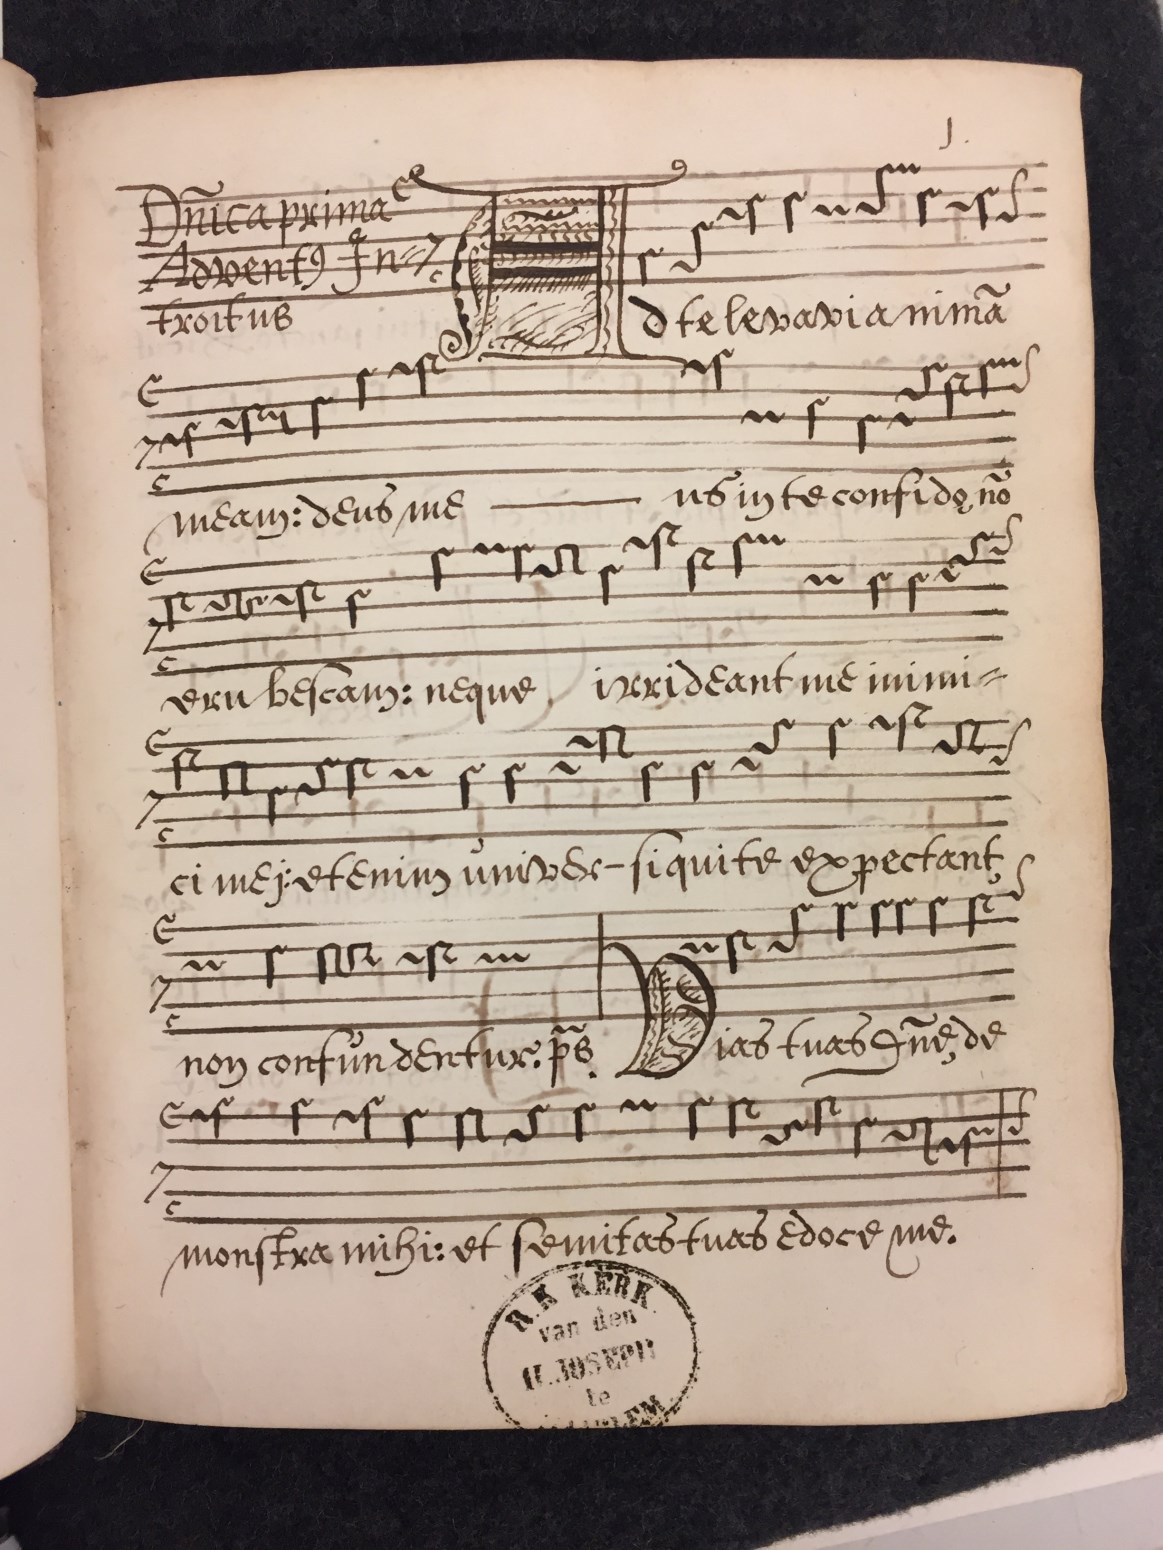 J.
Dn̄ica prima
Adventꝯ In=
troitus
Ad te levavi animā
meam: deus me — us in te confido, nō
erubescam: neque irrideant me inimi=
ci mei: etenim univer-si qui te expectant,
non confundentur. p̄s. Vias tuas dn̄e, de
monstra mihi: et semitas tuas edoce me.
R.K KERK
van den
H. JOSEPH
te
HAARLEM